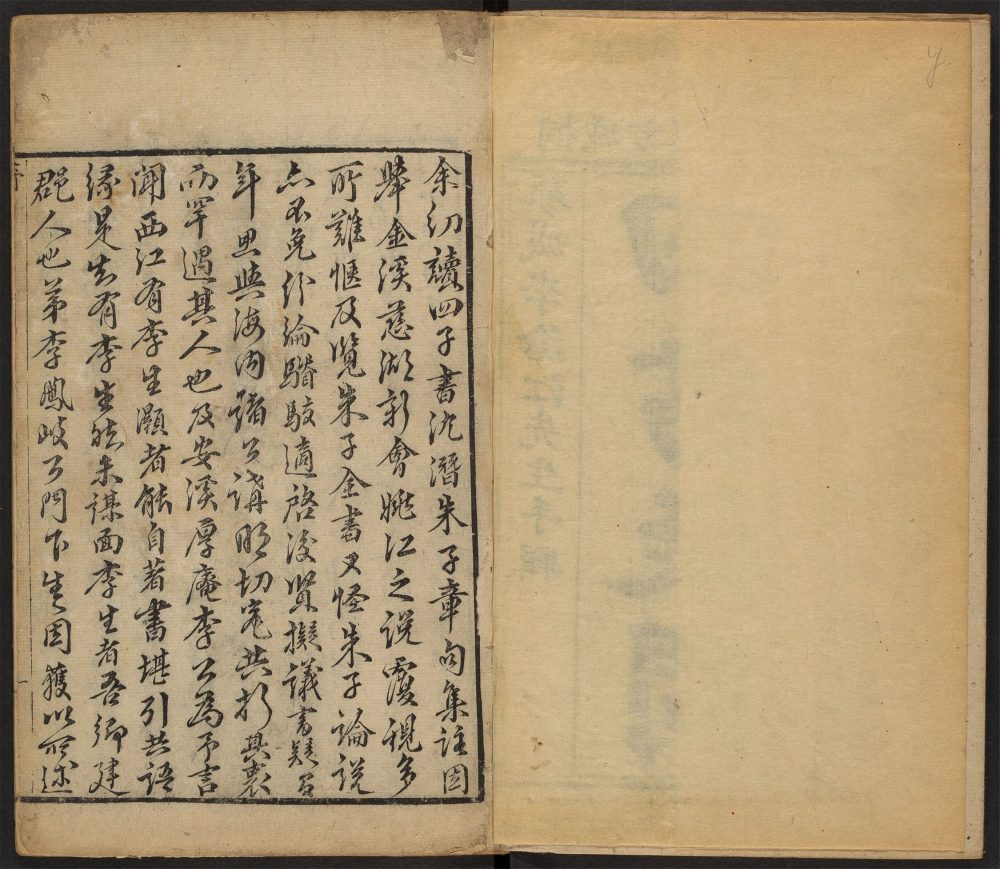 余幼讀四子書沈潛朱子章句集註因
舉金溪慈湖新會姚江之說覆視多
所難愜及覽朱子全書又怪朱子論說
亦不免紛綸駮適啓後賢擬議書疑
年思與海內諸公講明切究共折其衷
而罕遇其人也及安溪厚庵李公為予言
聞西江有李生灝者能自著書堪引共語
緣是知有李生然未謀面李生者吾鄉建
郡人也弟李鳳岐公門下生因獲以所述
序